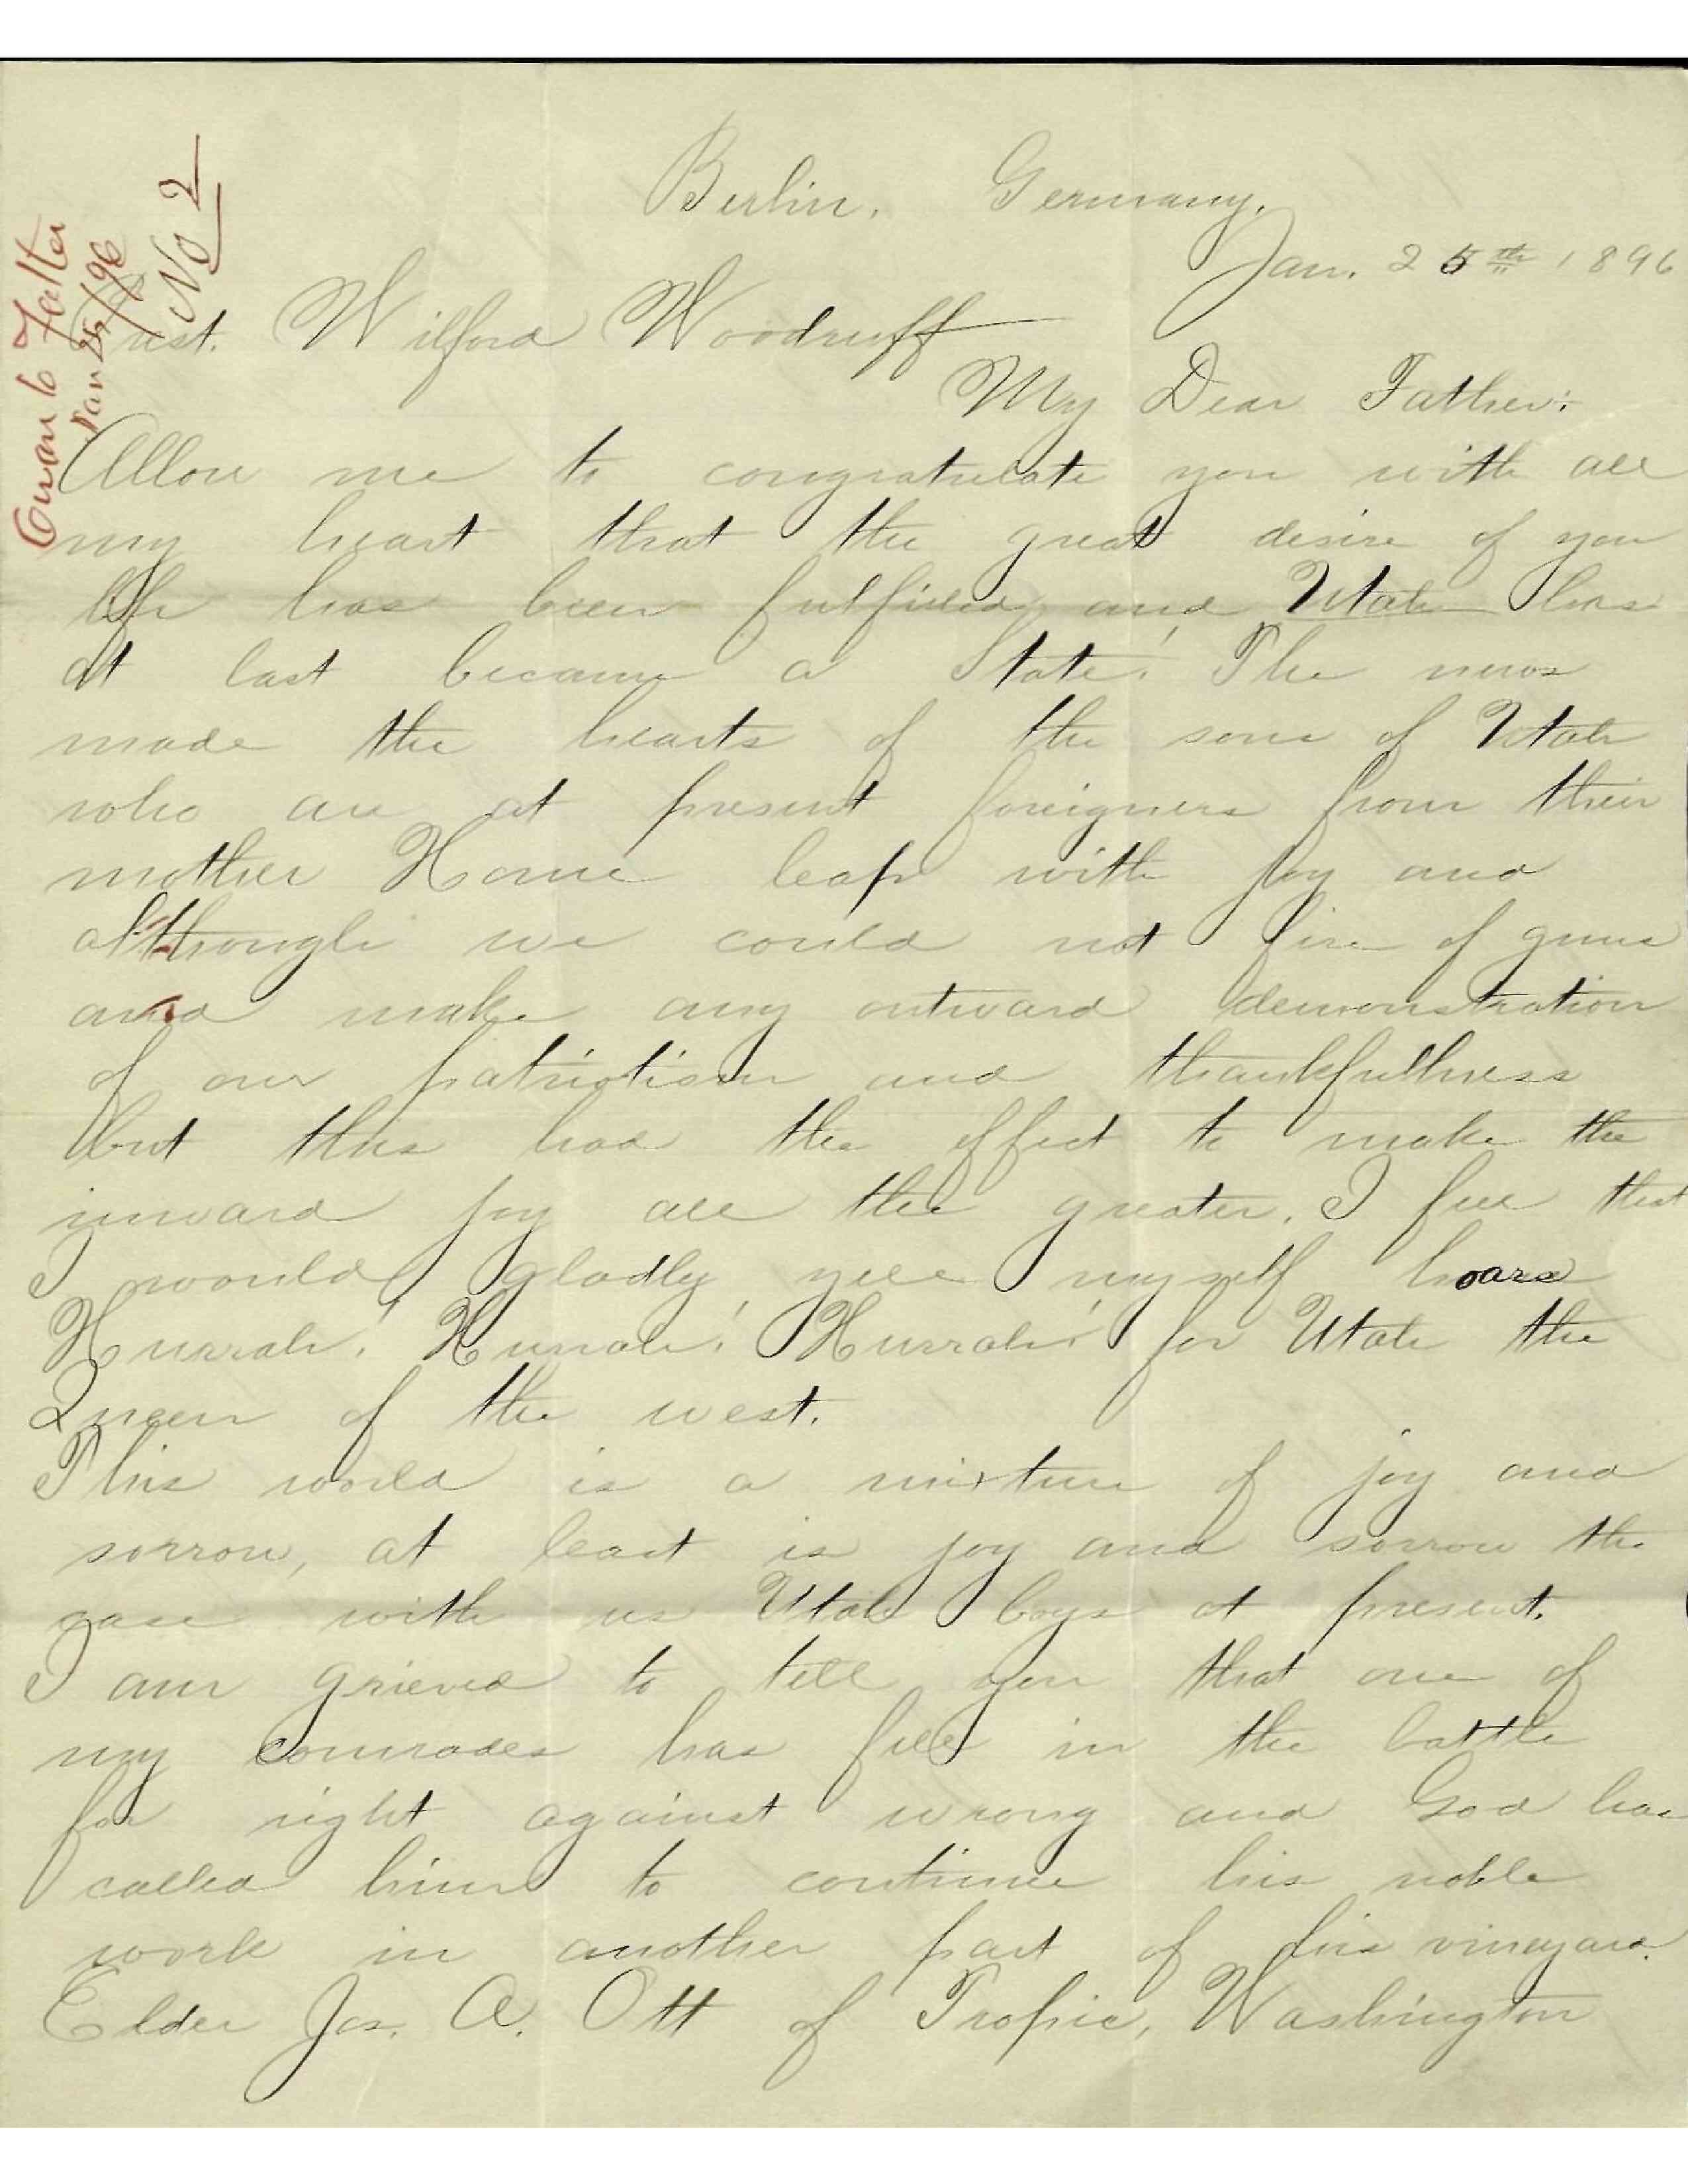 Owen to Father
Jan 25/96
No 2
Berlin, Germany.
Jan. 25th 1896
Prest. Wilford Woodruff
My Dear Father:
Allow me to congratulate you with all
my heart that the great desire of you
life has been fulfilled, and Utah has
at last became a State! The news
made the hearts of the sons of Utah
who are at present foreigners from their
mother Home leap with joy and
although we could not fire of guns
and make any outward demonstration
of our patriotism and thankfullness
but this had the effect to make the
inward joy all the greater. I feel that
I would gladly yell myself hoarse
Hurrah! Hurrah! Hurrah! for Utah the
Queen of the west.
This world is a mixture of joy and
sorrow, at least is joy and sorrow the
case with us Utah boys at present.
I am grieved to tell you that one of
my comrades has fell in the battle
for right against wrong and God has
called him to continue his noble
work in another part of his vineyard.
Elder Jos. A. Ott of Tropic, Washington